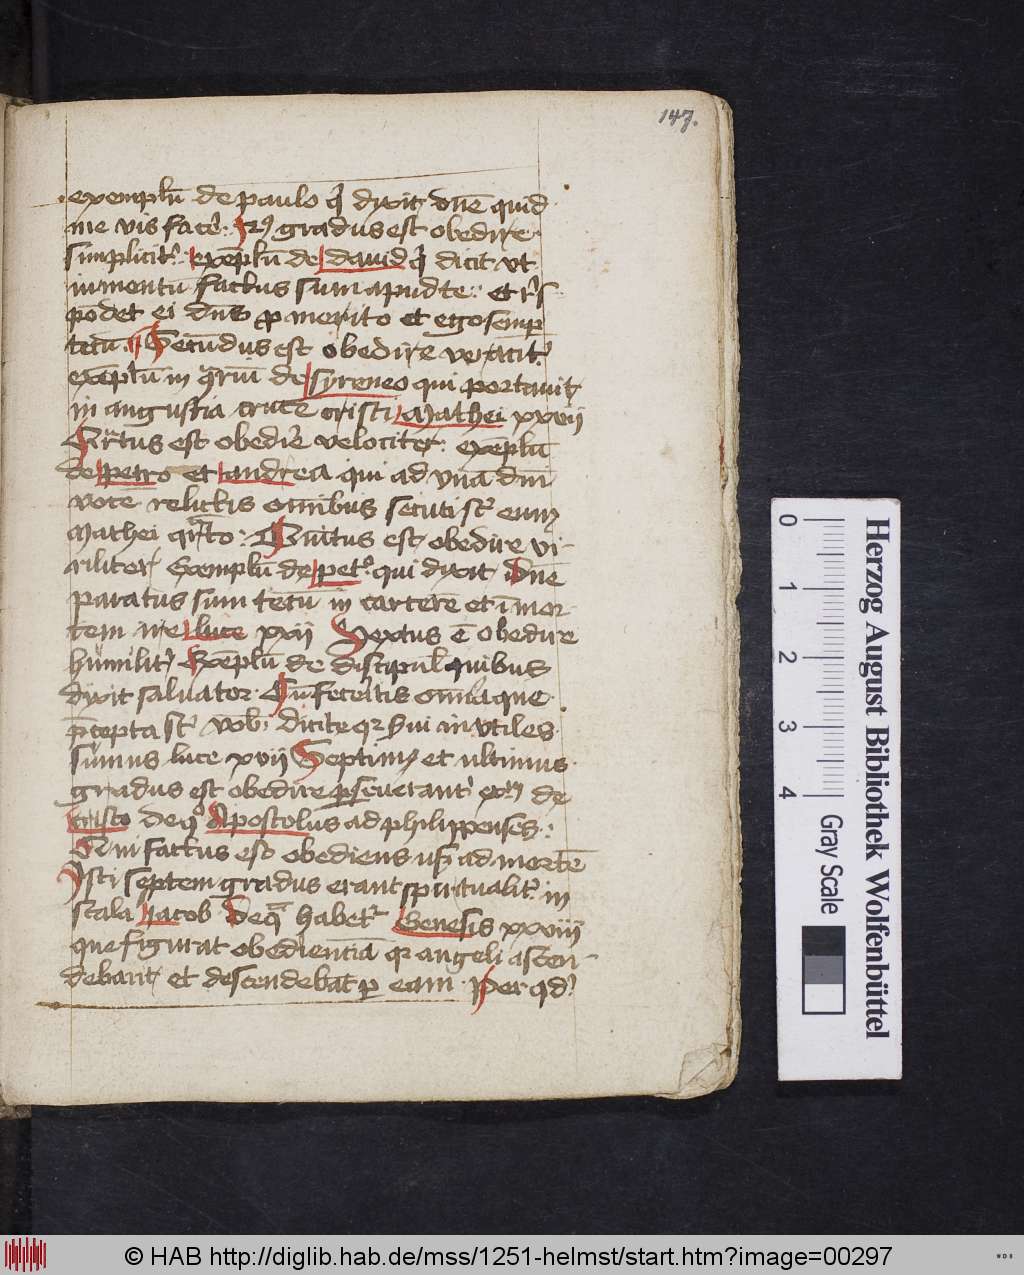 147.
exemplū de paulo q̇ dixit dn̄e quid
me vis facẽ. IIꝯ gradus est obedire
simplicitꝰ. exēplū de dauid q̇ dicit vt
iumentū factus sum apud te. et rn̄s
pōdet ei dn̄s ꝓ merito et ego semꝑ
tecū. Secūdus est obedire veracitꝰ
exēplū in de syreneo qui portauit
in angustia crucē cristi Mathei xxvii
est obedire velociter. exēplū
de petro et andrea qui ad vnā dn̄i
vocē relictis omībus secuti st̄ eum
Mathei qrto. Quītus est obedire vi-
riliter Exemplū de petꝰ qui dixit dn̄e
paratus sum tecū in carcerē et ī mor
tem ire luce xxii Sextus ē obedire
humilitꝰ Exēplū de discipul quibus
dixit saluator. Cū feceritis omīa que
p̄cepta st̄ vob dicite qꝛ sui inutiles
sumus luce xvii Septimꝰ et ultimus
gradus est obedire ꝑseuerantꝰ de
cristo de q̊ Apostolus ad philippenses.
factus est obediens usqꝫ ad mortē
Isti septem gradus erant spiritualitꝰ in
scala iacob de qͣ habetꝛ Genesis xxviii
que figurat obedienciā qꝛ angeli ascen-
debant et descendebāt ꝑ eam. Per qd
Herzog August Bibliothek Wolfenbüttel
0 1 2 3 4
Gray Scale
© HAB http://diglib.hab.de/mss/1251-helmst/start.htm?image=00297